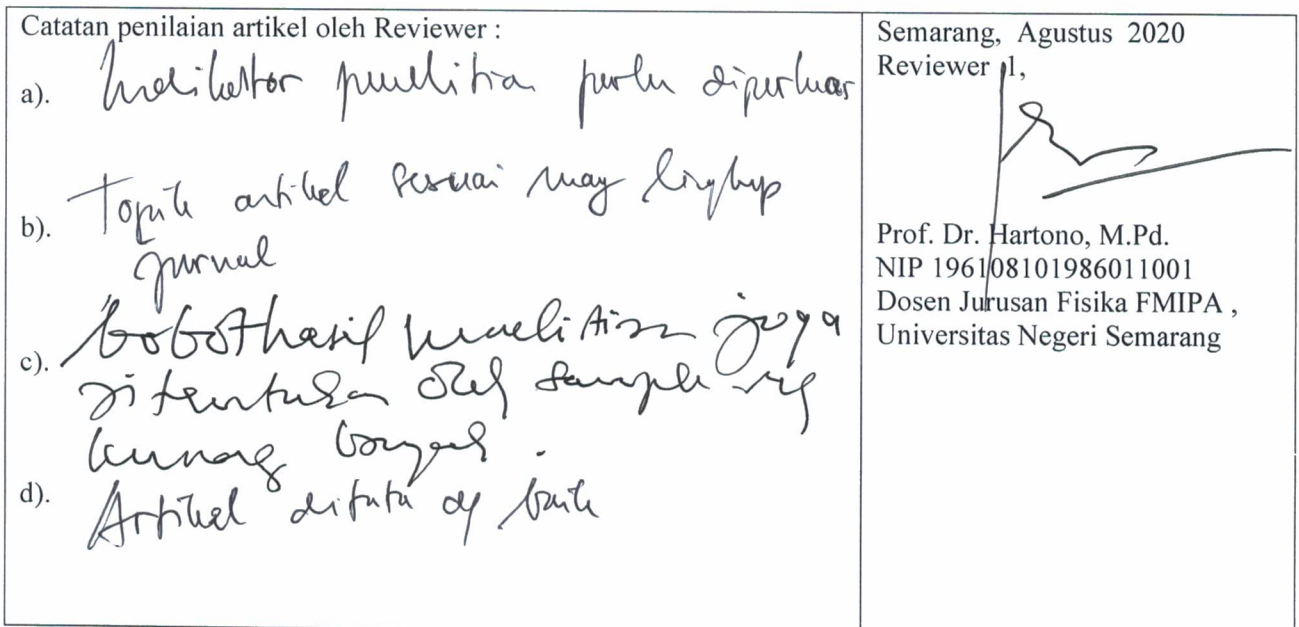 Catatan penilaian artikel oleh Reviewer :
a). Indikator penelitian perlu diperluas
b). Topik artikel sesuai ruang lingkup
jurnal
c). bobot hasil penelitian juga
ditentukan oleh sample yg
kurang banyak.
d). Artikel ditata dg baik
Semarang, Agustus 2020
Reviewer 1,
Prof. Dr. Hartono, M.Pd.
NIP 196108101986011001
Dosen Jurusan Fisika FMIPA ,
Universitas Negeri Semarang